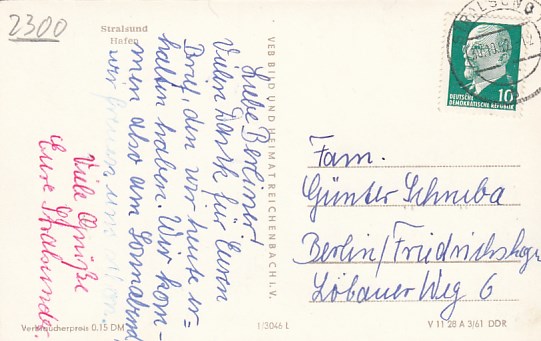 2300
Stralsund
Hafen
Liebe Berliner!
Vielen Dank für Euren
Brief, den wir heute er-
halten haben. Wir kom-
men also am Sonnabend
wir freuen uns
Viele Grüße
Eure Stralsunder.
VEB BILD UND HEIMAT REICHENBACH I. V.
STRALSUND
10
DEUTSCHE
DEMOKRATISCHE REPUBLIK
Fam.
Günter Schriba
Berlin/Friedrichshagen
Löbauer Weg 6
Verbraucherpreis 0,15 DM
1/3046 L
V 11 28 A 3/61 DDR